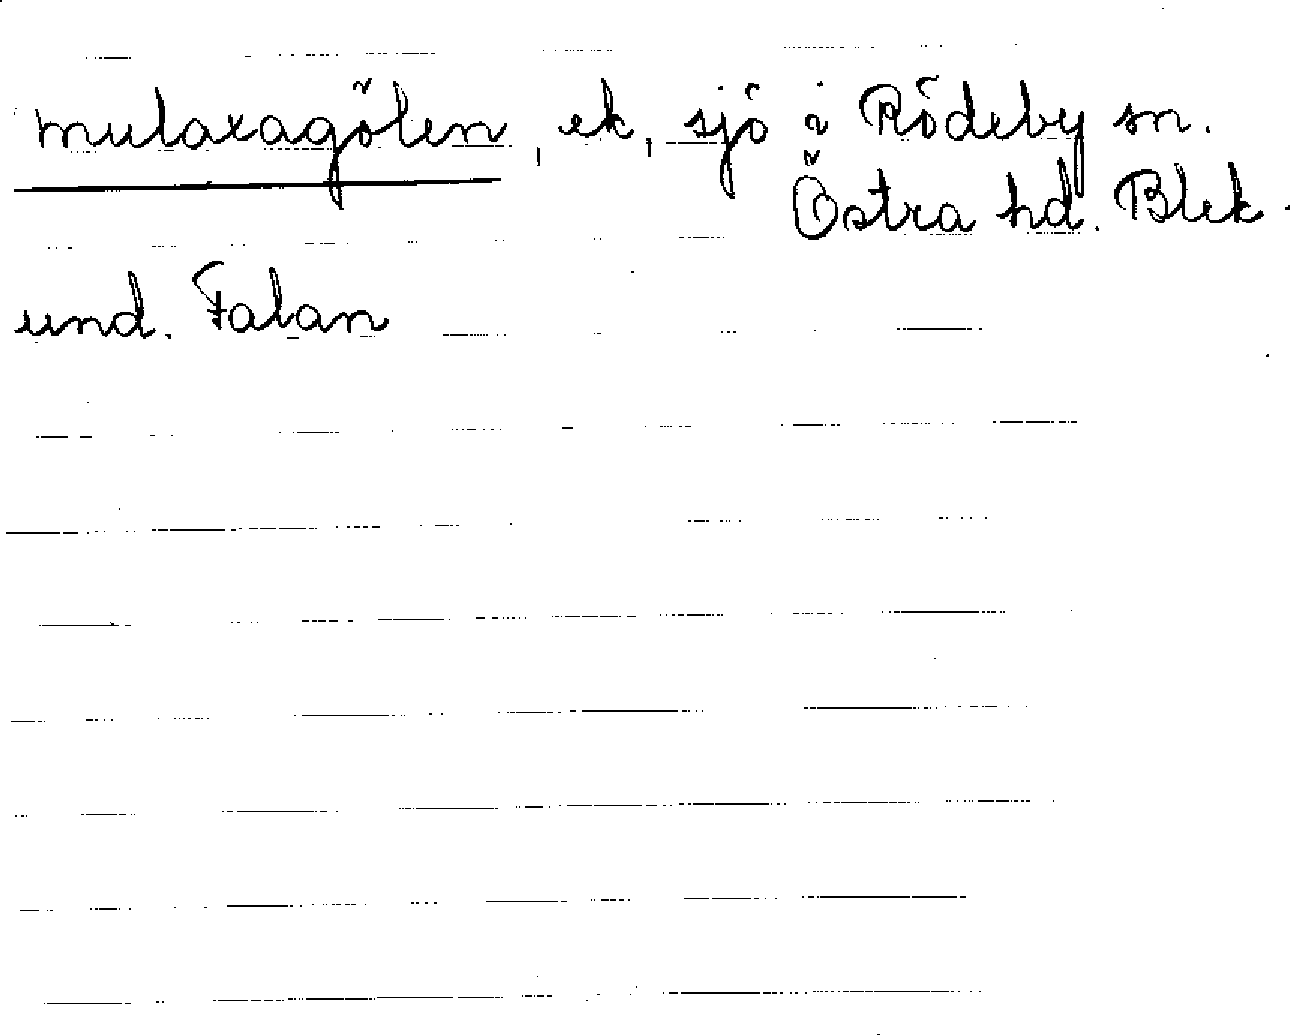 mulaxagölen, ek, sjö i Rödeby sn.
Östra hd. Blek.
und. Falan